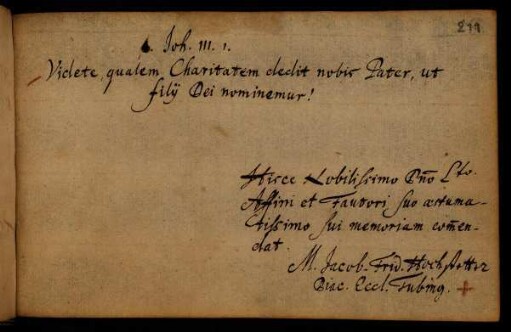 219
1. Joh. III. 1.
Videte, qualem Charitatem dedit nobis Pater, ut
filij Dei nominemur!
Hisce Nobilissimo Dn̄o Lto.
Affini et Fautori suo æstuma-
tissimo sui memoriam com̄en-
dat.
M. Jacob. Frid. Hochstetter
Diac. Eccl. Tubing.